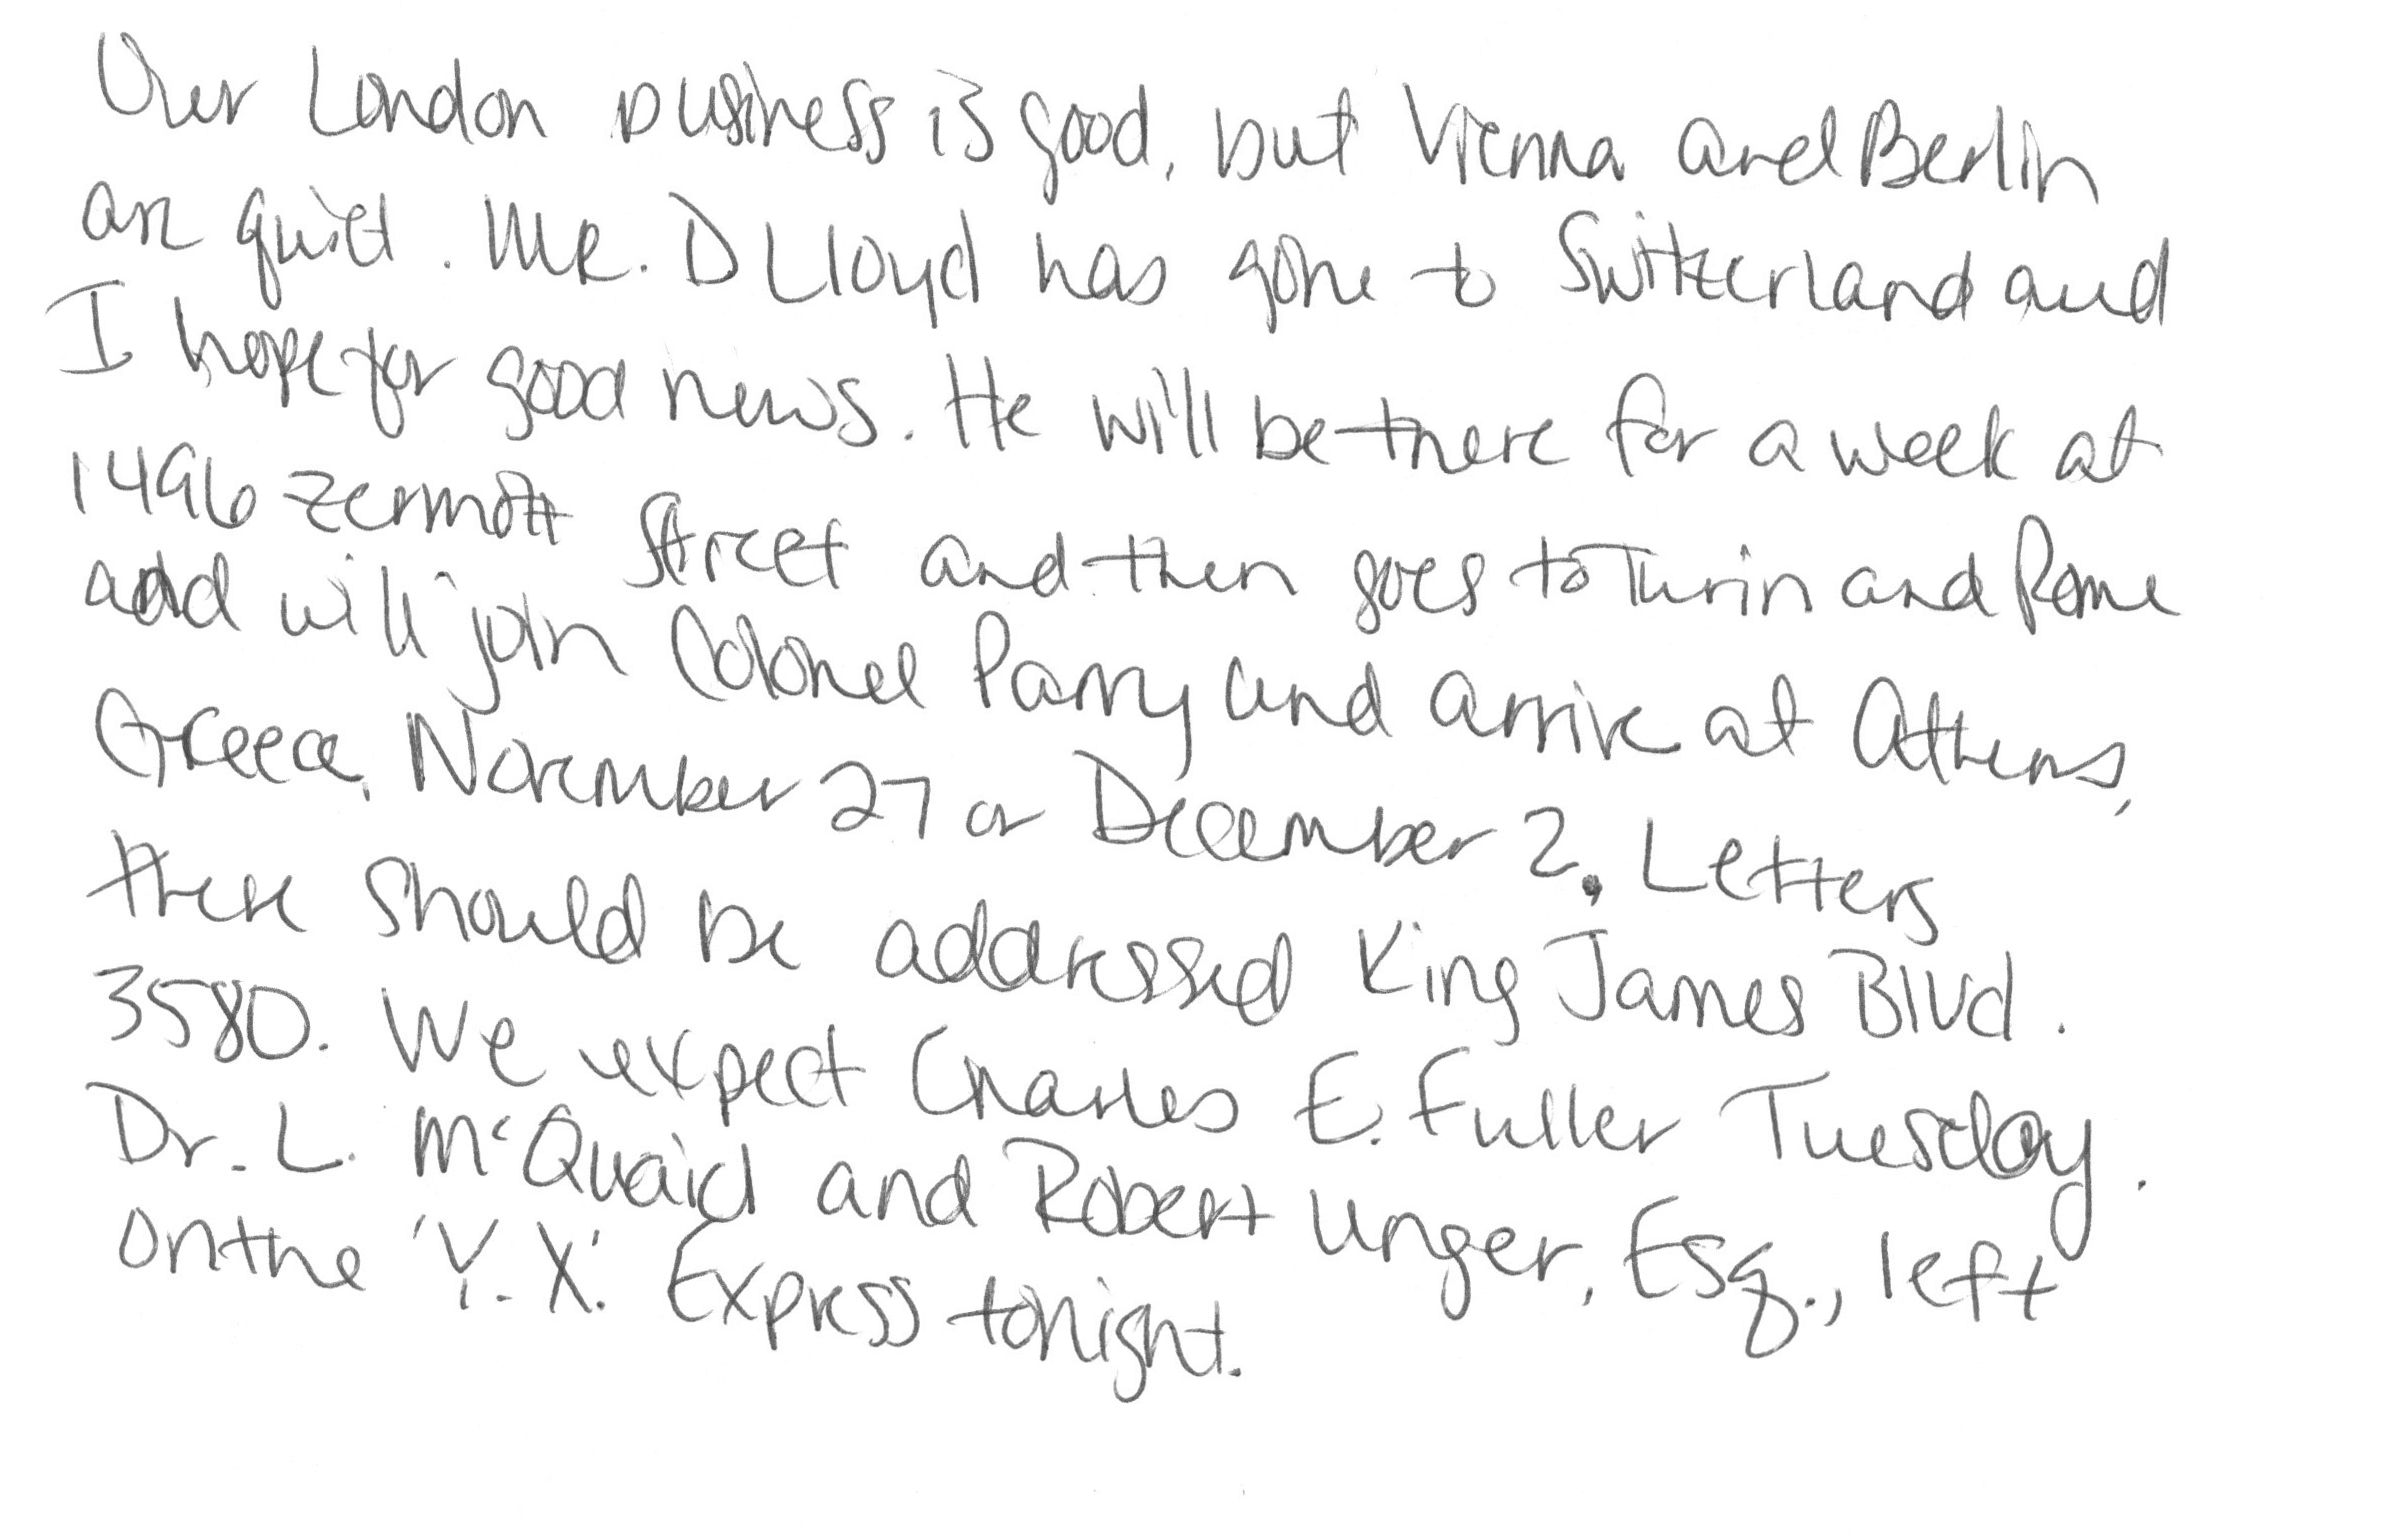 Our London business is good, but Vienna and Berlin
are quiet. Mr. D Lloyd has gone to Switzerland and
I hope for good news. He will be there for a week at
1496 Zermott Street and then goes to Turin and Rome
and will join Colonel Parry and arrive at Athens,
Greece, November 27 or December 2. Letters
there should be addressed King James Blvd.
3580. We expect Charles E. Fuller Tuesday.
Dr. L. McQuaid and Robert Unger, Esq., left
on the 'Y. X.' Express tonight.